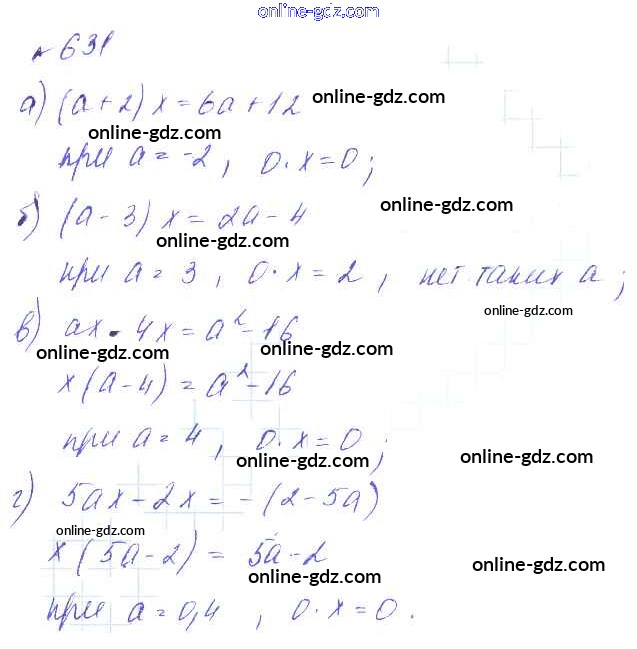 online-gdz.com
№ 631
а) (a+2)x = 6a+12 online-gdz.com
online-gdz.com
при a = -2, 0·x=0;
online-gdz.com
б) (a-3)x = 2a-4
online-gdz.com
при a = 3, 0·x = 2, нет таких a;
online-gdz.com
в) ax - 4x = a²-16
online-gdz.com online-gdz.com
x(a-4) = a²-16
при a = 4, 0·x = 0;
online-gdz.com online-gdz.com
г) 5ax-2x = -(2-5a)
online-gdz.com
x(5a-2) = 5a-2
online-gdz.com online-gdz.com
при a = 0,4, 0·x=0.